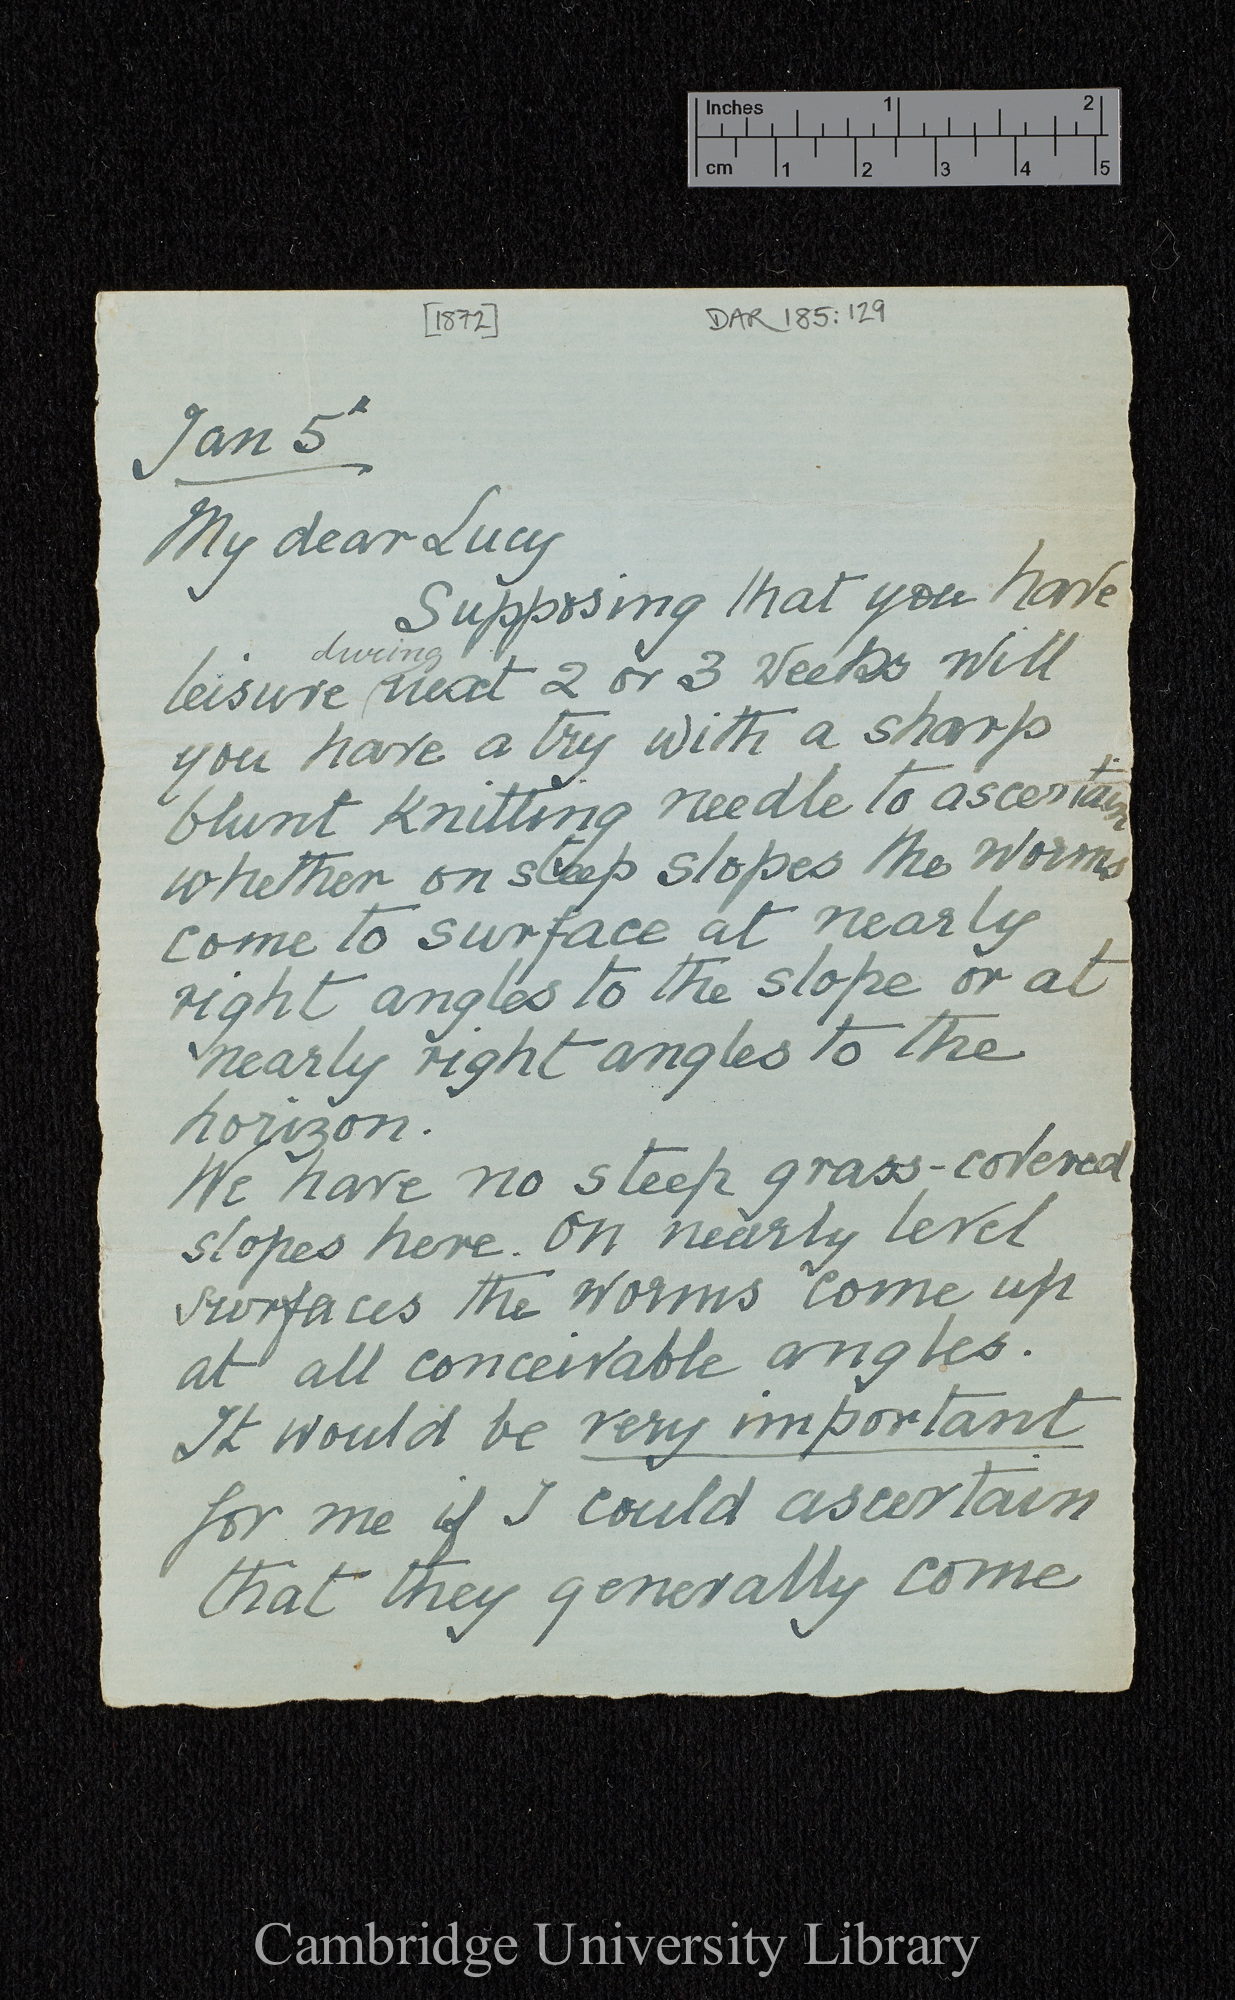 Inches 1 2
cm 1 2 3 4 5
[1872] DAR 185:129
Jan 5th
My dear Lucy
Supposing that you have
during
leisure next 2 or 3 weeks will
you have a try with a sharp
blunt knitting needle to ascertain
whether on steep slopes the worms
come to surface at nearly
right angles to the slope or at
nearly right angles to the
horizon.
We have no steep grass-covered
slopes here. On nearly level
surfaces the worms come up
at all conceivable angles.
It would be very important
for me if I could ascertain
that they generally come
Cambridge University Library